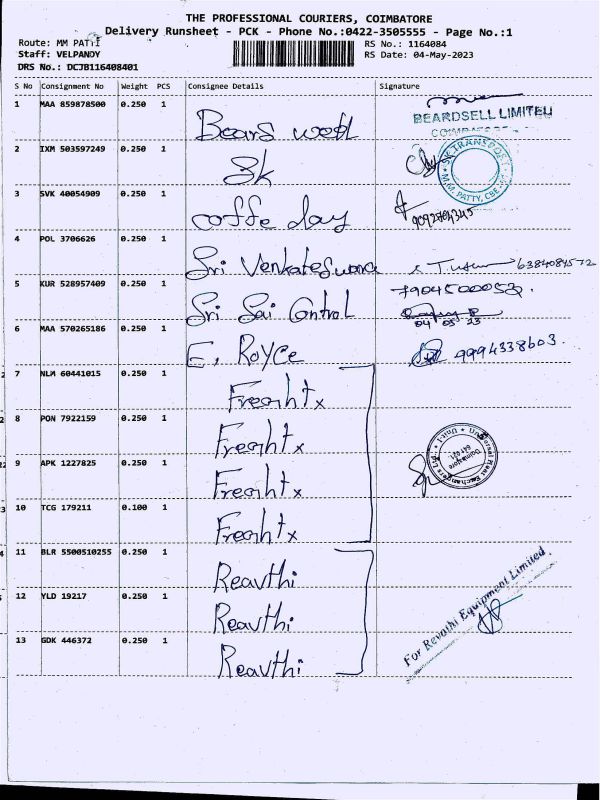 THE PROFESSIONAL COURIERS, COIMBATORE
Delivery Runsheet - PCK - Phone No.:0422-3505555 - Page No.:1
Route: MM PATTI RS No.: 1164084
Staff: VELPANDY RS Date: 04-May-2023
DRS No.: DCJB116408401
S No Consignment No Weight PCS Consignee Details Signature
1 MAA 859878500 0.250 1 Bears well
BEARDSELL LIMITED
COIMBATORE
2 IXM 503597249 0.250 1 Sk
SK TRANSPORT
M.M. PATTY, CBE
3 SVK 40054909 0.250 1 coffe day
4 POL 3706626 0.250 1 Sri Venkateswara 6384084572
5 KUR 528957409 0.250 1 Sri Sai Control 7904500052.
04 05 23
6 MAA 570265186 0.250 1 E. Royce 9994338603.
7 NLM 60441015 0.250 1 Freaht x
8 PON 7922159 0.250 1 Freaht x
9 APK 1227825 0.250 1 Freaht x
Universal Heat Exchangers Ltd. Unit-1
Coimbatore
641 021
10 TCG 179211 0.100 1 Freaht x
11 BLR 5500510255 0.250 1 Reavthi
12 YLD 19217 0.250 1 Reavthi
For Revathi Equipment Limited
13 GDK 446372 0.250 1 Reavthi